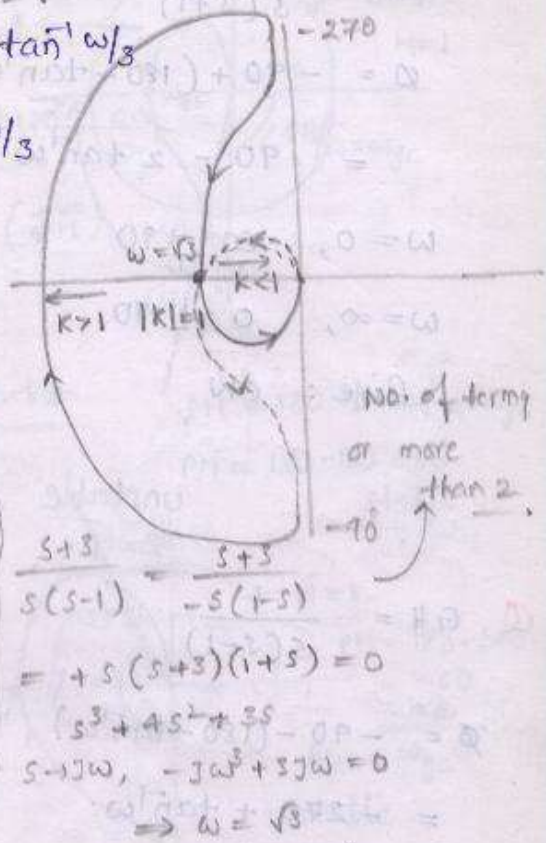 tan⁻¹ ω/3
-270
/3
ω = √3
K<1
K>1 |K|=1
NO. of terms
or more
than 2.
-90°
s+3 / s(s-1) = s+3 / -s(1-s)
= +s(s+3)(1+s) = 0
s³ + 4s² + 3s
s→jω, -jω³ + 3jω = 0
⇒ ω = √3